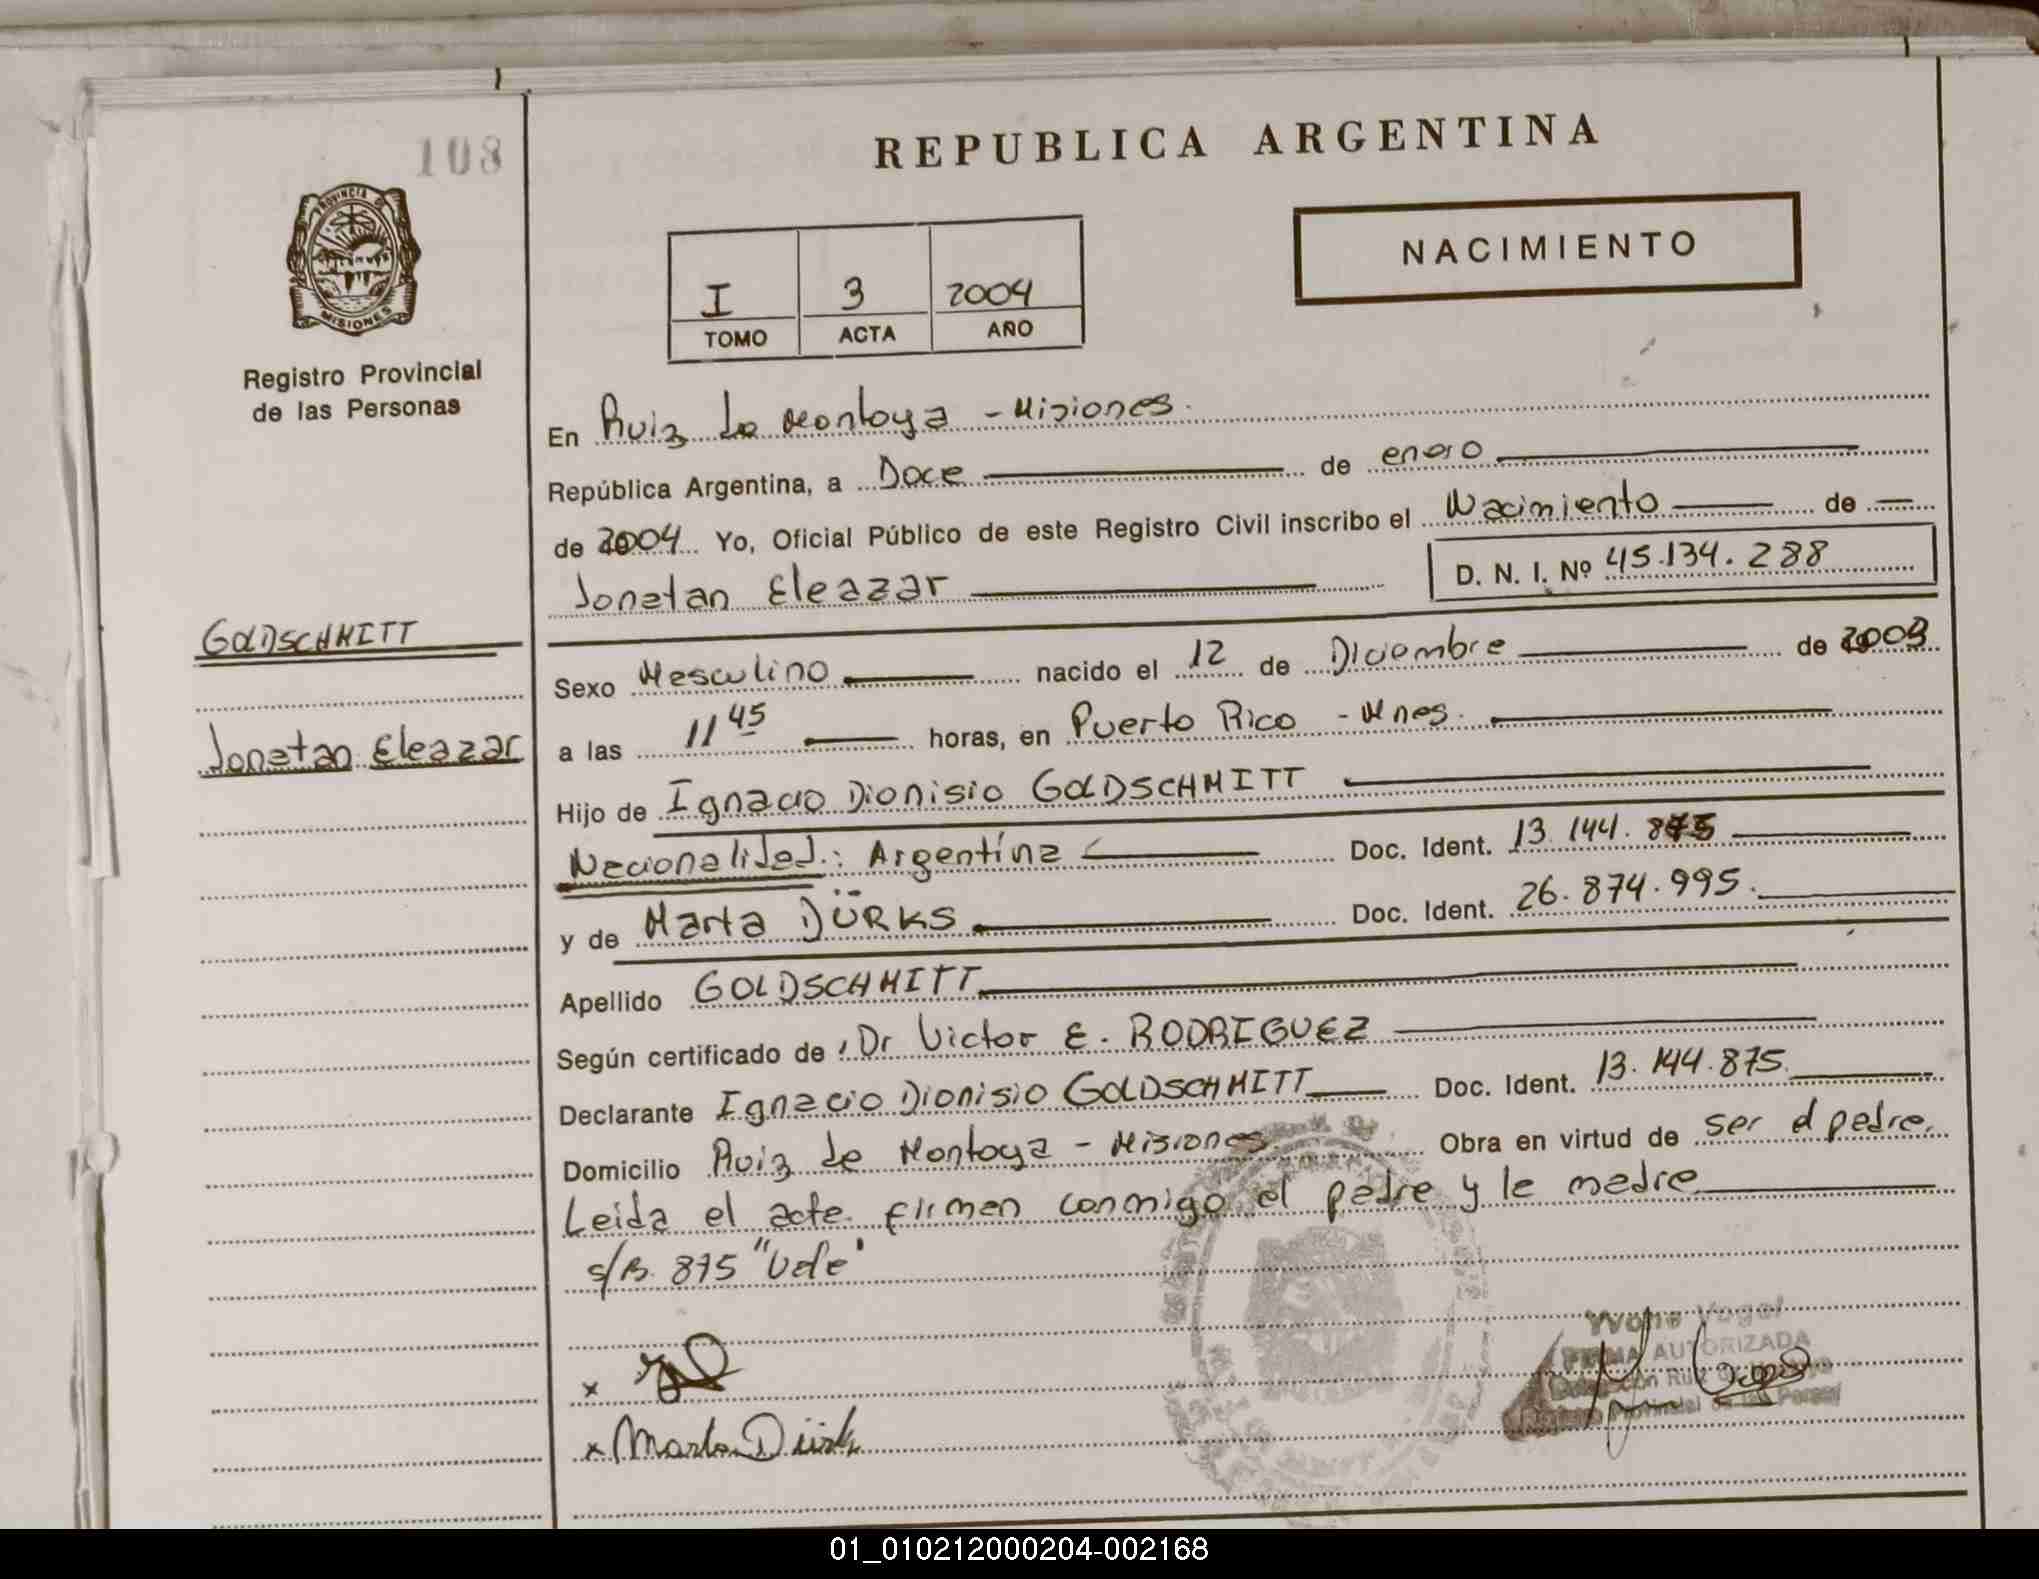 108
REPUBLICA ARGENTINA
PROVINCIA DE
MISIONES
NACIMIENTO
I 3 2004
TOMO ACTA AÑO
Registro Provincial
de las Personas
En Ruiz de Montoya - Misiones.
República Argentina, a Doce de enero
de 2004 Yo, Oficial Público de este Registro Civil inscribo el Nacimiento de
Jonatan Eleazar D. N. I. Nº 45.134.288
GOLDSCHMITT
Sexo Masculino nacido el 12 de Diciembre de 2003
Jonatan Eleazar
a las 11 45 horas, en Puerto Rico - Mnes.
Hijo de Ignacio Dionisio GOLDSCHMITT
Nacionalidad: Argentina Doc. Ident. 13.144.875
y de Marta DÜRKS Doc. Ident. 26.874.995.
Apellido GOLDSCHMITT
Según certificado de Dr Victor E. RODRIGUEZ
Declarante Ignacio Dionisio GOLDSCHMITT Doc. Ident. 13.144.875.
Domicilio Ruiz de Montoya - Misiones Obra en virtud de ser el padre.
Leida el acta firman conmigo el padre y la madre
s/B. 875 "Vale"
x
x Marta Dürks
Yvone Vogel
FIRMA AUTORIZADA
Delegación Ruiz de Montoya
Registro Provincial de las Personas
01_010212000204-002168